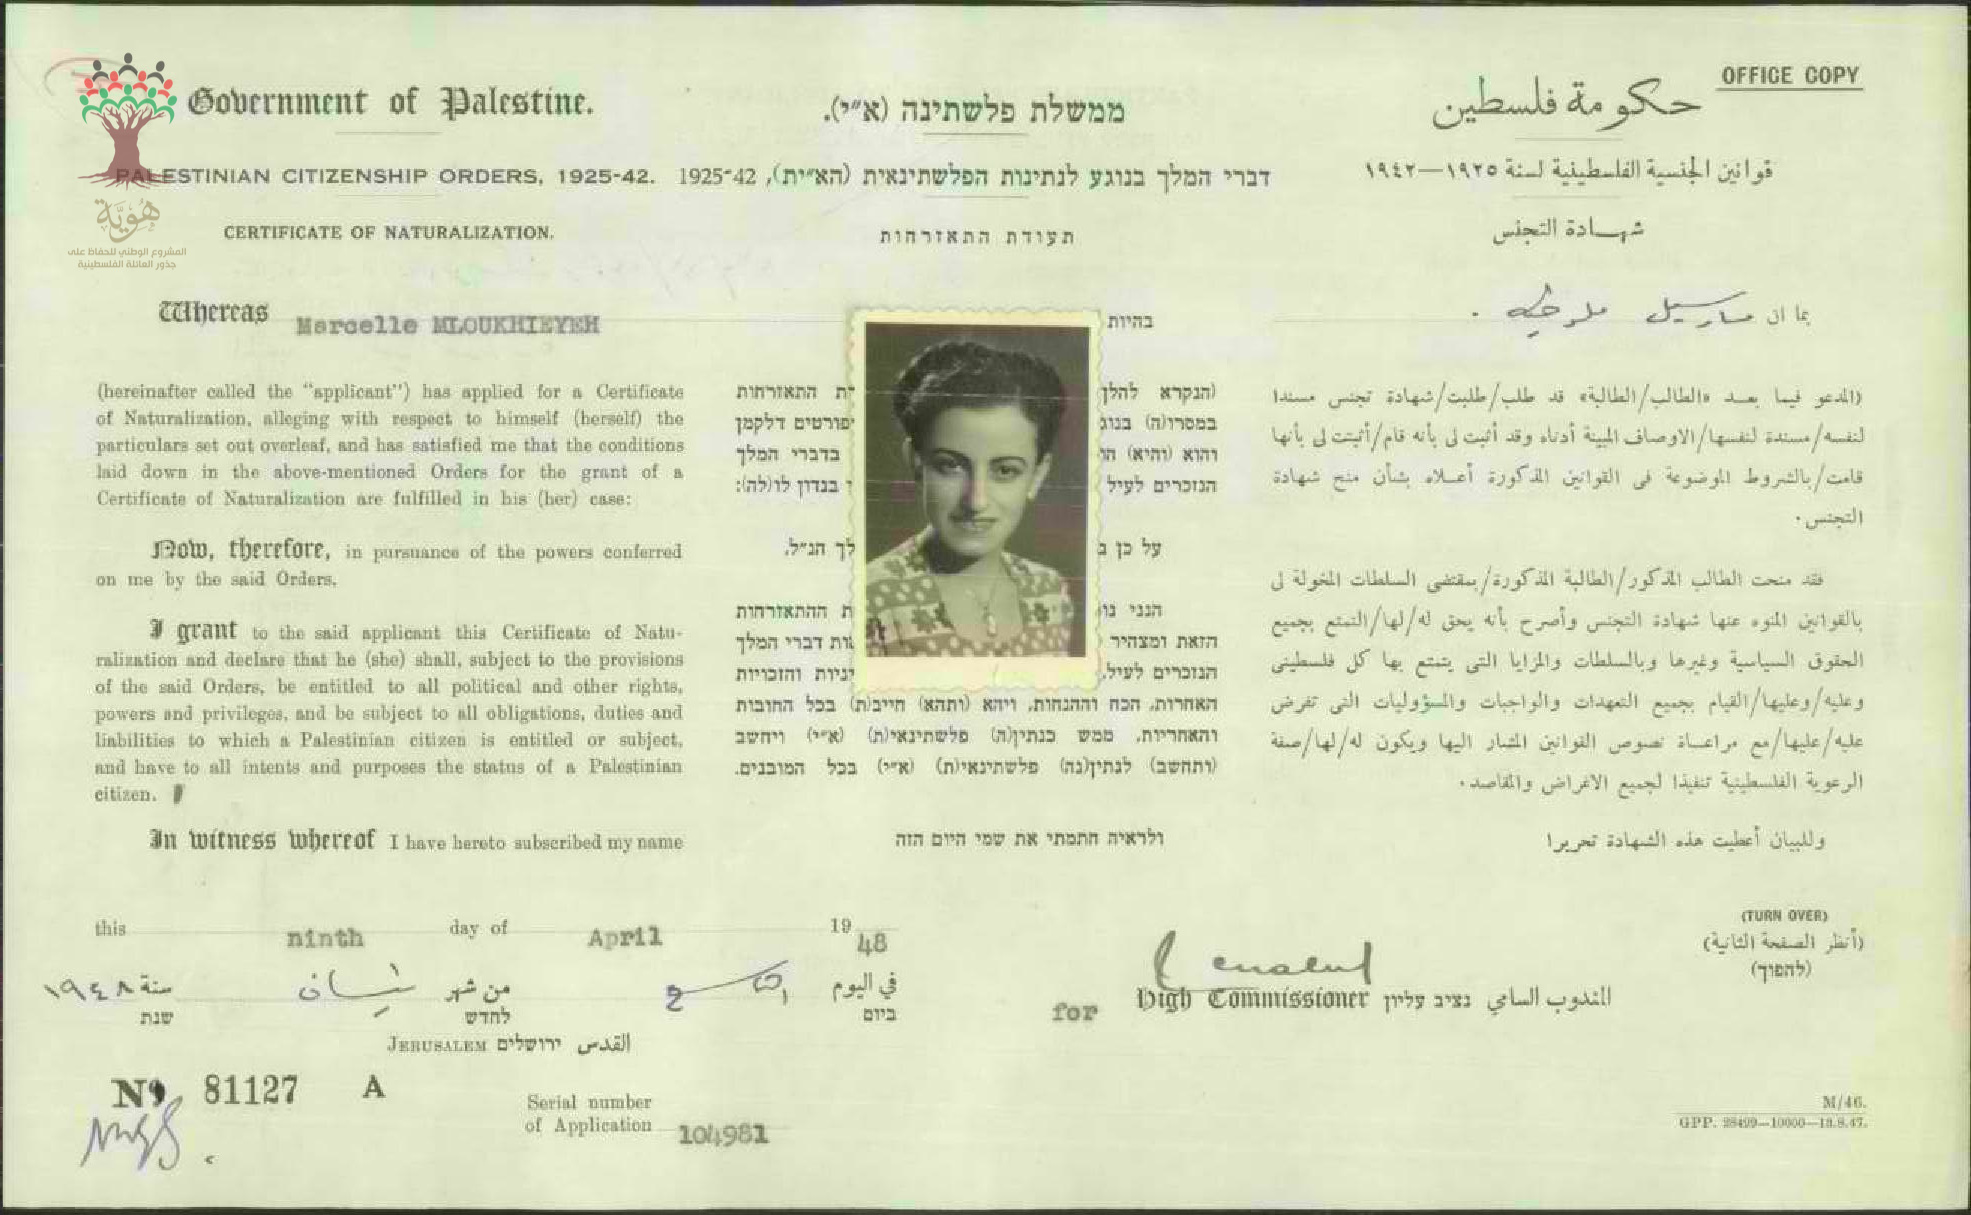 OFFICE COPY
Government of Palestine.
ממשלת פלשתינה (א״י).
حكومة فلسطين
PALESTINIAN CITIZENSHIP ORDERS, 1925-42.
דברי המלך בנוגע לנתינות הפלשתינאית (הא״ית), 1925-42
قوانين الجنسية الفلسطينية لسنة ١٩٢٥—١٩٤٢
CERTIFICATE OF NATURALIZATION.
תעודת התאזרחות
شهادة التجنس
هُوِيَّة
المشروع الوطني للحفاظ على
جذور العائلة الفلسطينية
Whereas Marcelle MLOUKHIEYEH
(hereinafter called the "applicant") has applied for a Certificate
of Naturalization, alleging with respect to himself (herself) the
particulars set out overleaf, and has satisfied me that the conditions
laid down in the above-mentioned Orders for the grant of a
Certificate of Naturalization are fulfilled in his (her) case:
Now, therefore, in pursuance of the powers conferred
on me by the said Orders,
I grant to the said applicant this Certificate of Natu-
ralization and declare that he (she) shall, subject to the provisions
of the said Orders, be entitled to all political and other rights,
powers and privileges, and be subject to all obligations, duties and
liabilities to which a Palestinian citizen is entitled or subject,
and have to all intents and purposes the status of a Palestinian
citizen.
In witness whereof I have hereto subscribed my name
בהיות
(הנקרא להלן ת התאזרחות
במסרו(ה) בנוג פורטים דלקמן
והוא (והיא) בדברי המלך
הנזכרים לעיל בנדון לו(לה):
על כן לך הנ״ל,
הנני ת ההתאזרחות
הזאת ומצהיר ות דברי המלך
הנזכרים לעיל, ניות והזכויות
האחרות, הכח וההנחות, ויהא (ותהא) חייב(ת) בכל החובות
והאחריות, ממש כנתין(ה) פלשתינאי(ת) (א״י) ויחשב
(ותחשב) לנתין(נה) פלשתינאי(ת) (א״י) בכל המובנים.
ולראיה חתמתי את שמי היום הזה
بما ان مارسيل ملوخيه
(المدعو فيما بعد «الطالب/الطالبة» قد طلب/طلبت/شهادة تجنس مسندا
لنفسه/مسندة لنفسها/الاوصاف المبينة أدناه وقد أثبت لى بأنه قام/أثبتت لى بأنها
قامت/بالشروط الموضوعة فى القوانين المذكورة أعلاه بشأن منح شهادة
التجنس.
فقد منحت الطالب المذكور/الطالبة المذكورة/بمقتضى السلطات المخولة لى
بالقوانين المنوه عنها شهادة التجنس وأصرح بأنه يحق له/لها/التمتع بجميع
الحقوق السياسية وغيرها وبالسلطات والمزايا التى يتمتع بها كل فلسطينى
وعليه/وعليها/القيام بجميع التعهدات والواجبات والمسؤوليات التى تفرض
عليه/عليها/مع مراعاة نصوص القوانين المشار اليها ويكون له/لها/صفة
الرعوية الفلسطينية تنفيذا لجميع الاغراض والمقاصد.
وللبيان أعطيت هذه الشهادة تحريرا
this ninth day of April 1948
في اليوم التاسع من شهر نيسان سنة ١٩٤٨
ביום לחדש שנת
JERUSALEM ירושלים القدس
for High Commissioner נציב עליון المندوب السامي
(TURN OVER)
(أنظر الصفحة الثانية)
(להפוך)
No. 81127 A
Serial number
of Application 104981
M/46.
GPP. 28499—10000—13.8.47.